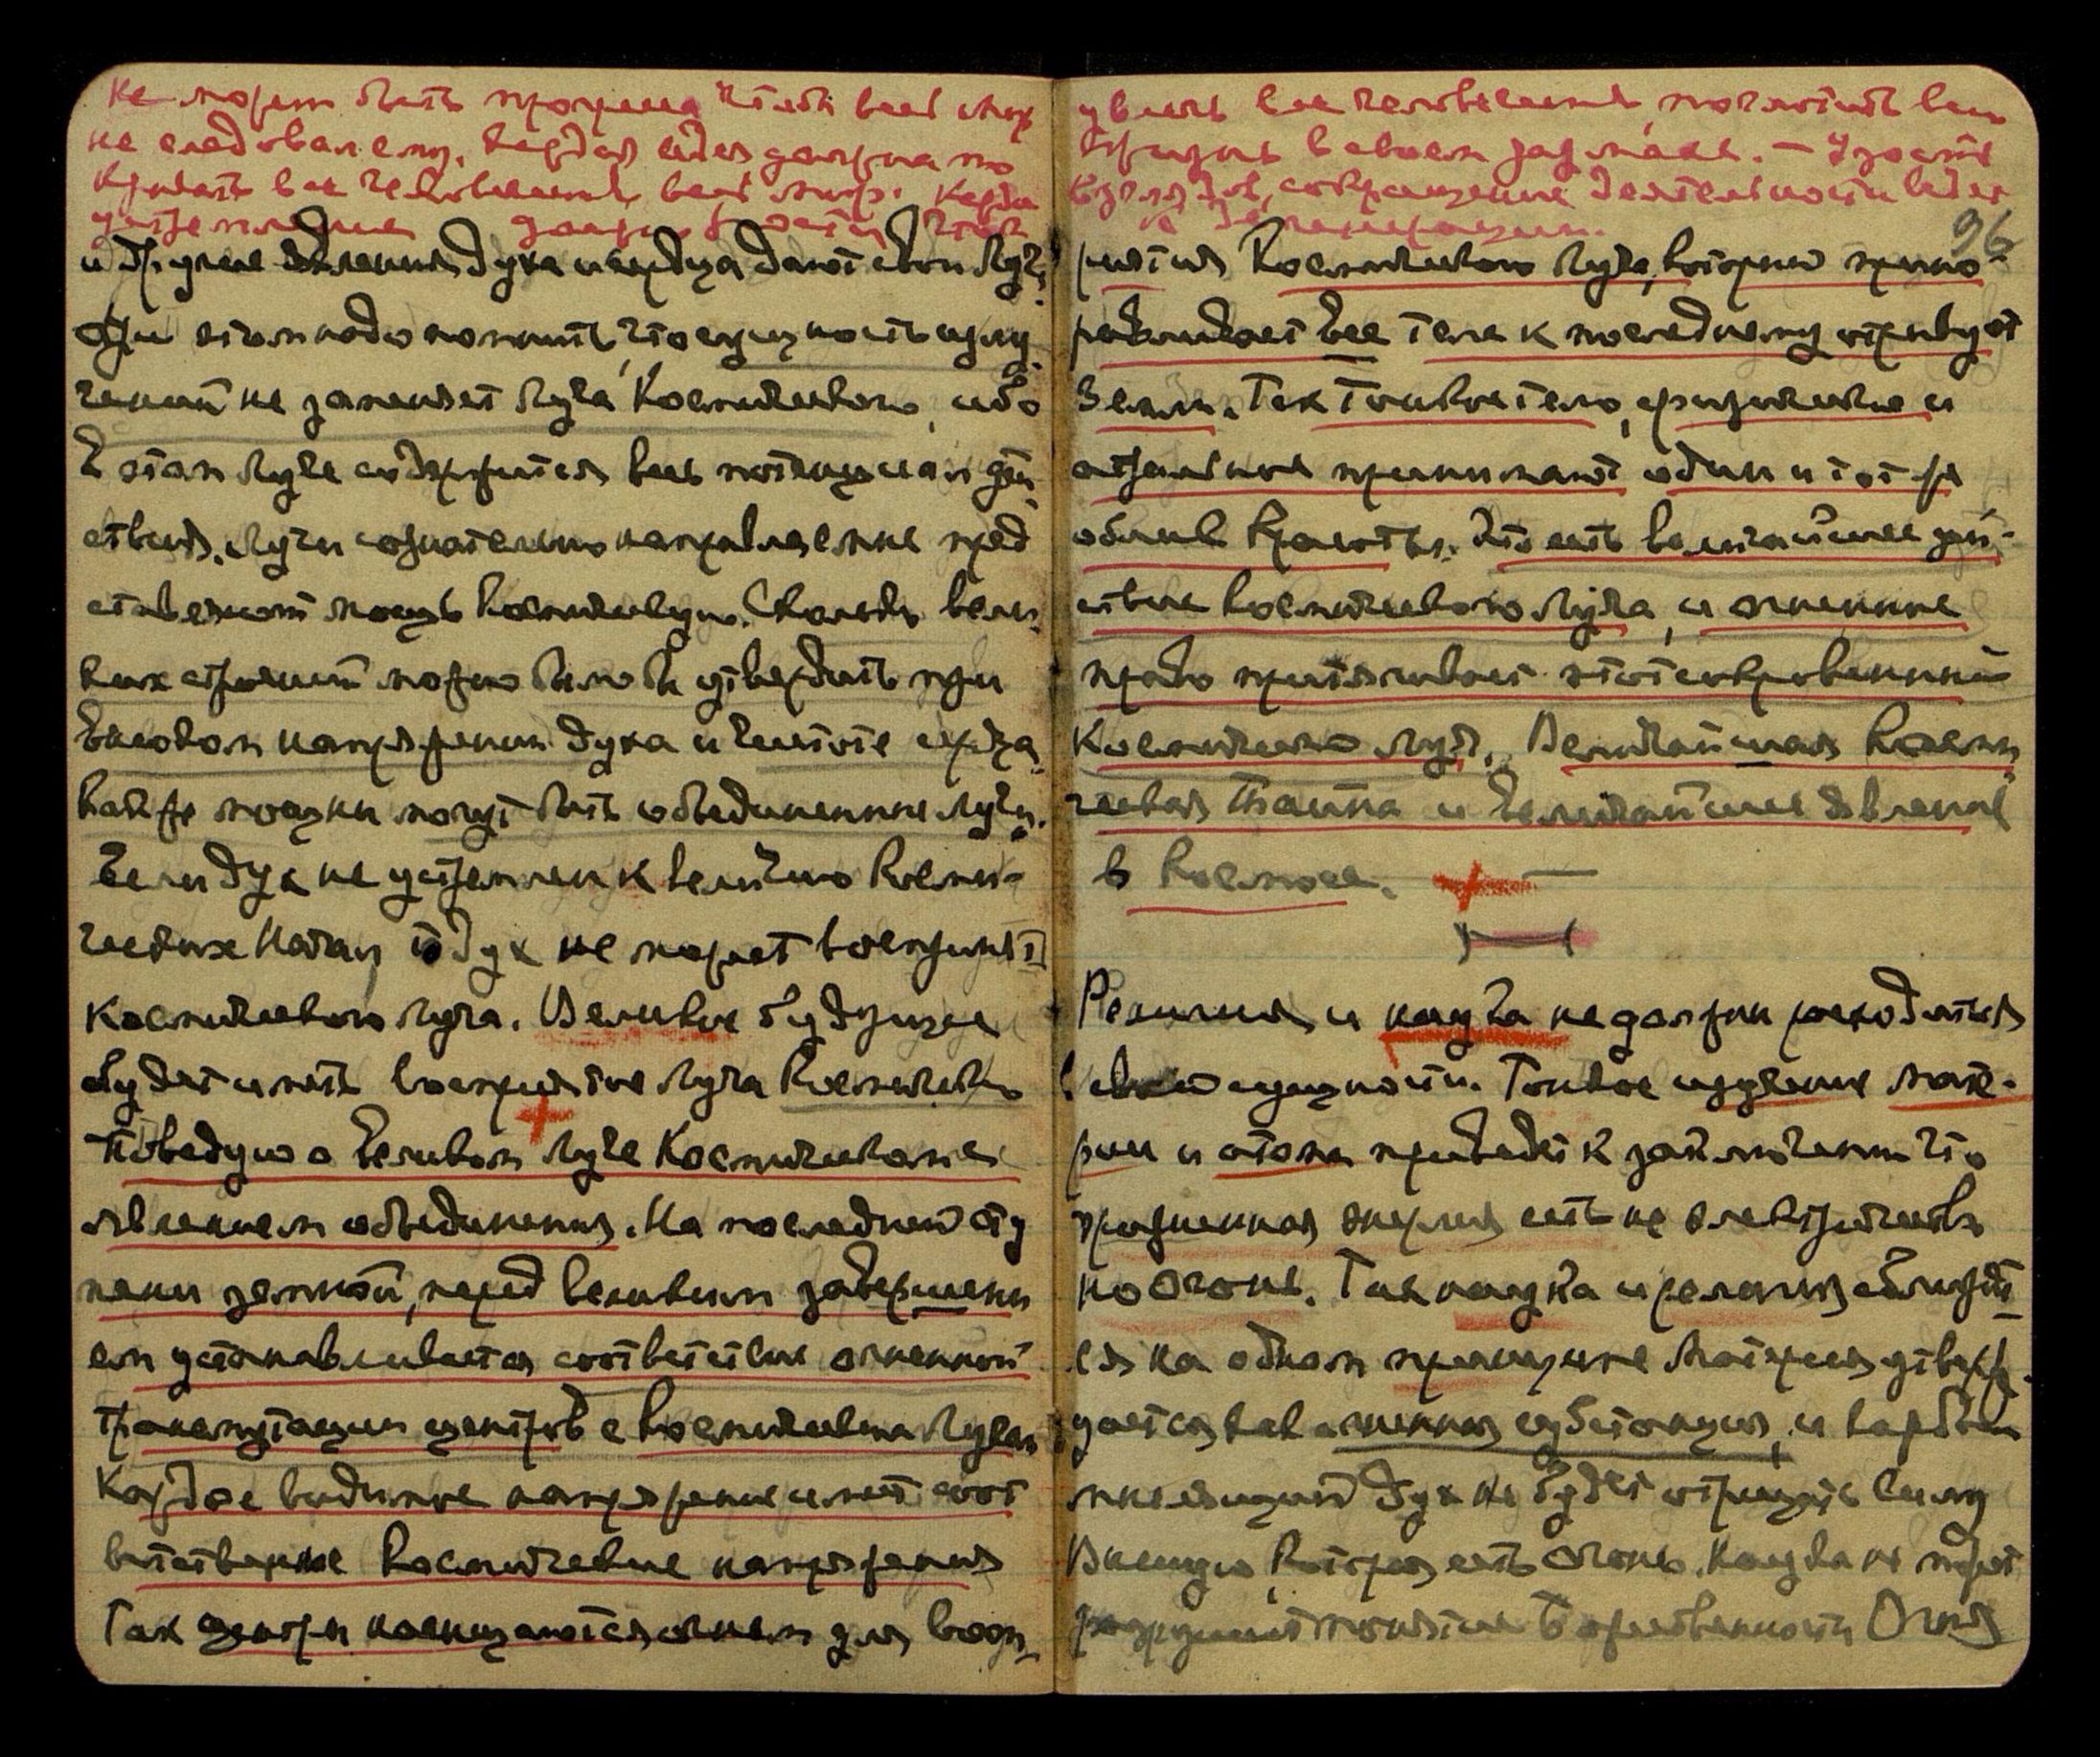 не может быть прощена чтобы весь мир
не следовал ему. Каждая идея должна по
крывать все человечество, весь мир. Когда
устремление
и другие явления духа и сердца дают свои лучи.
При этом надо помнить, что сущность излу
чений не заменяет Луча Космического, ибо
в этом Луче содержится весь потенциал дей
ствия. Лучи сознательно направляемые пред
ставляют мощь Космическую. Сколько вели
ких строений можно было бы утвердить при
высоком напряжении духа и чистоте сердца
Как же мощны могут быть объединенные лучи.
Если дух не устремлен к величию Косми-
ческих Начал, то дух не может воспринять
Космического луча. Великое будущее
будет иметь восприятие Луча Космического
Поведую о Великом Луче Космического
явлением объединения. На последней сту
пени земной, перед великим завершени
ем устанавливается соответствие огненной
трансмутации центров с Космическим Лучом
Каждое видимое напряжение имеет соот
ветственные Космические напряжения
Так центры насыщаются огнем для восп
увлечь все человечество, поглотить всю
жизнь в своем размахе. – Узость
взглядов, сокращение деятельности ведет
к
96
риятия Космического Луча, который прино-
равливает все тела к последнему отрыву от
Земли. Так тонкое тело, физическое и
астральное принимают один и тот же
облик Красоты. Это есть величайшее дей-
ствие Космического Луча, и огненное
право притягивает этот сокровенный
Космический Луч. Величайшая Косми
ческая Тайна и величайшее явление
в Космосе. –
Религия и наука не должны расходиться
в своей сущности. Тонкое изучение мате-
рии и атома приведет к заключению что
жизненная энергия есть не электричество
но Огонь. Так наука и религия сблизят
ся на одном принципе Материя утверж
дается как огненная субстанция, и каждый
мыслящий дух не будет отрицать силу
Высшую, Которая есть Огонь. Наука не может
разрушить понятие Божественности Огня